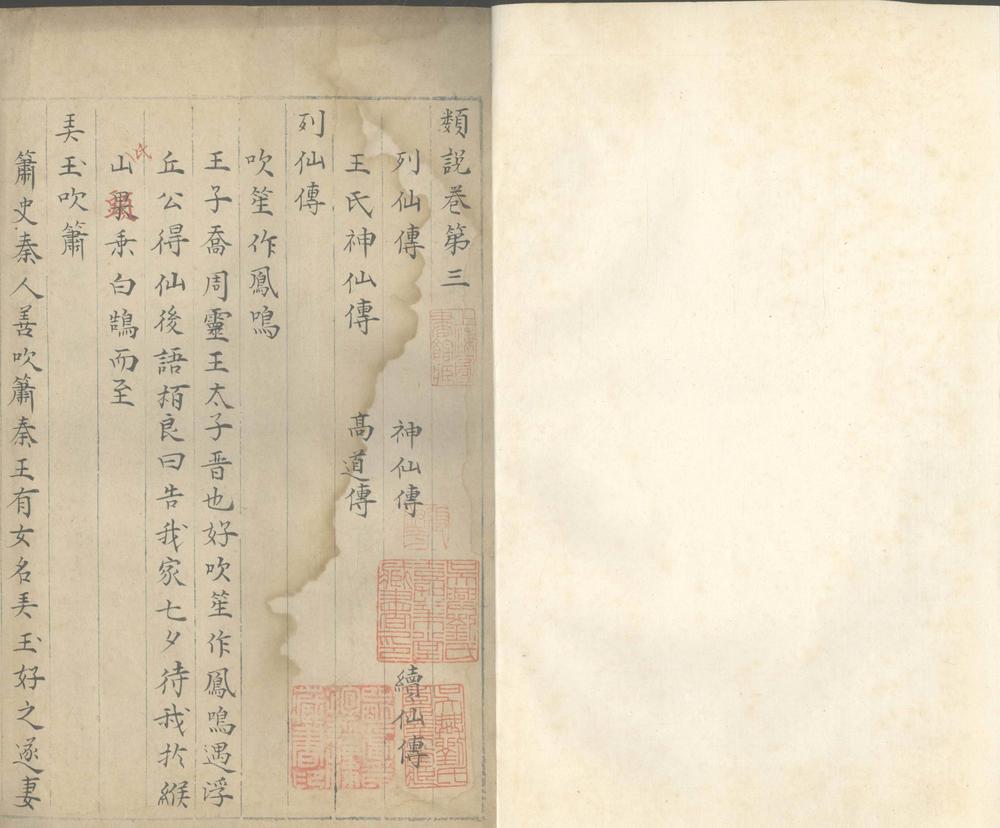 類說卷第三
列仙傳 神仙傳 續仙傳
王氏神仙傳 高道傳
列仙傳
吹笙作鳳鳴
王子喬周靈王太子晉也好吹笙作鳳鳴遇浮
丘公得仙後語栢良曰告我家七夕待我扵緱
氏山乗白鵠而至
弄玉吹簫
簫史秦人善吹簫秦王有女名弄玉好之遂妻
吳興劉氏嘉業堂藏書印